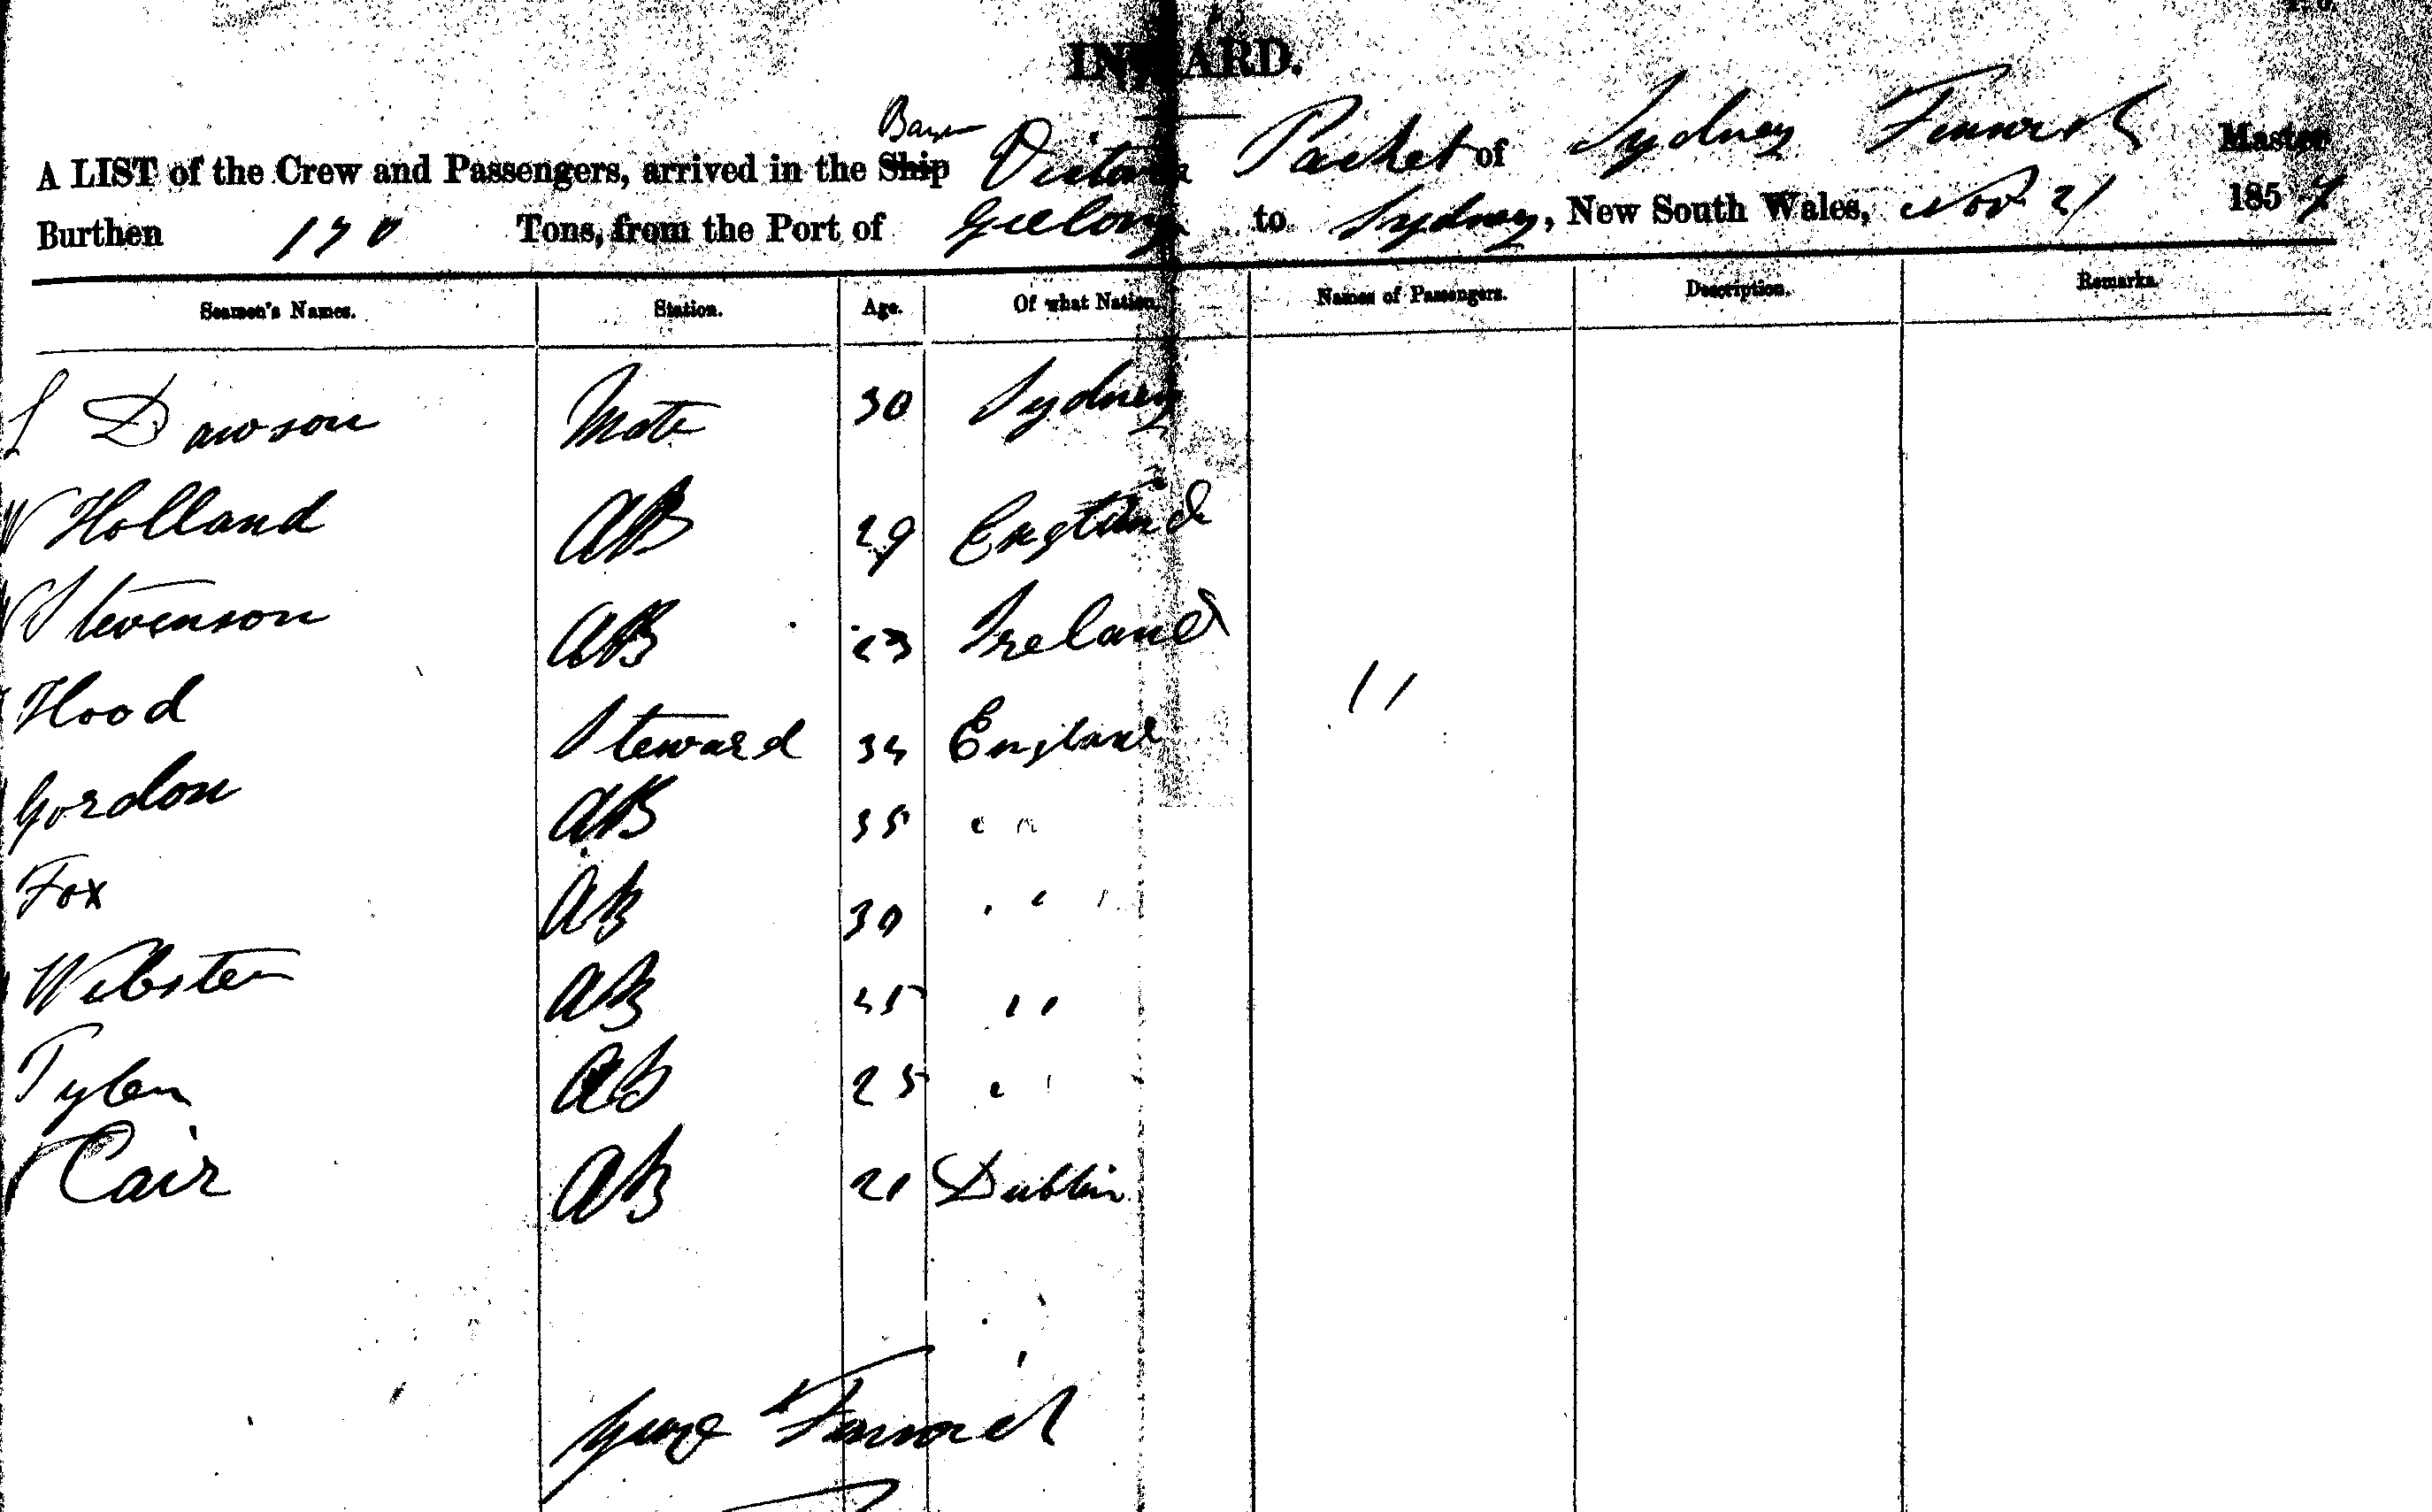 INWARD.
A LIST of the Crew and Passengers, arrived in the Ship Victoria Packet of Sydney Master
Burthen 170 Tons, from the Port of Geelong to Sydney, New South Wales, Nov 21 185
Seamen's Names. Station. Age. Of what Nation. Names of Passengers. Description. Remarks.
Dawson Mate 30 Sydney
W Holland AB 29 England
Stevenson AB 23 Ireland
Hood Steward 34 England "
Gordon AB 35 "
Fox AB 30 "
Webster AB "
Tyler AB 25 "
Cair AB 21 Dublin
George